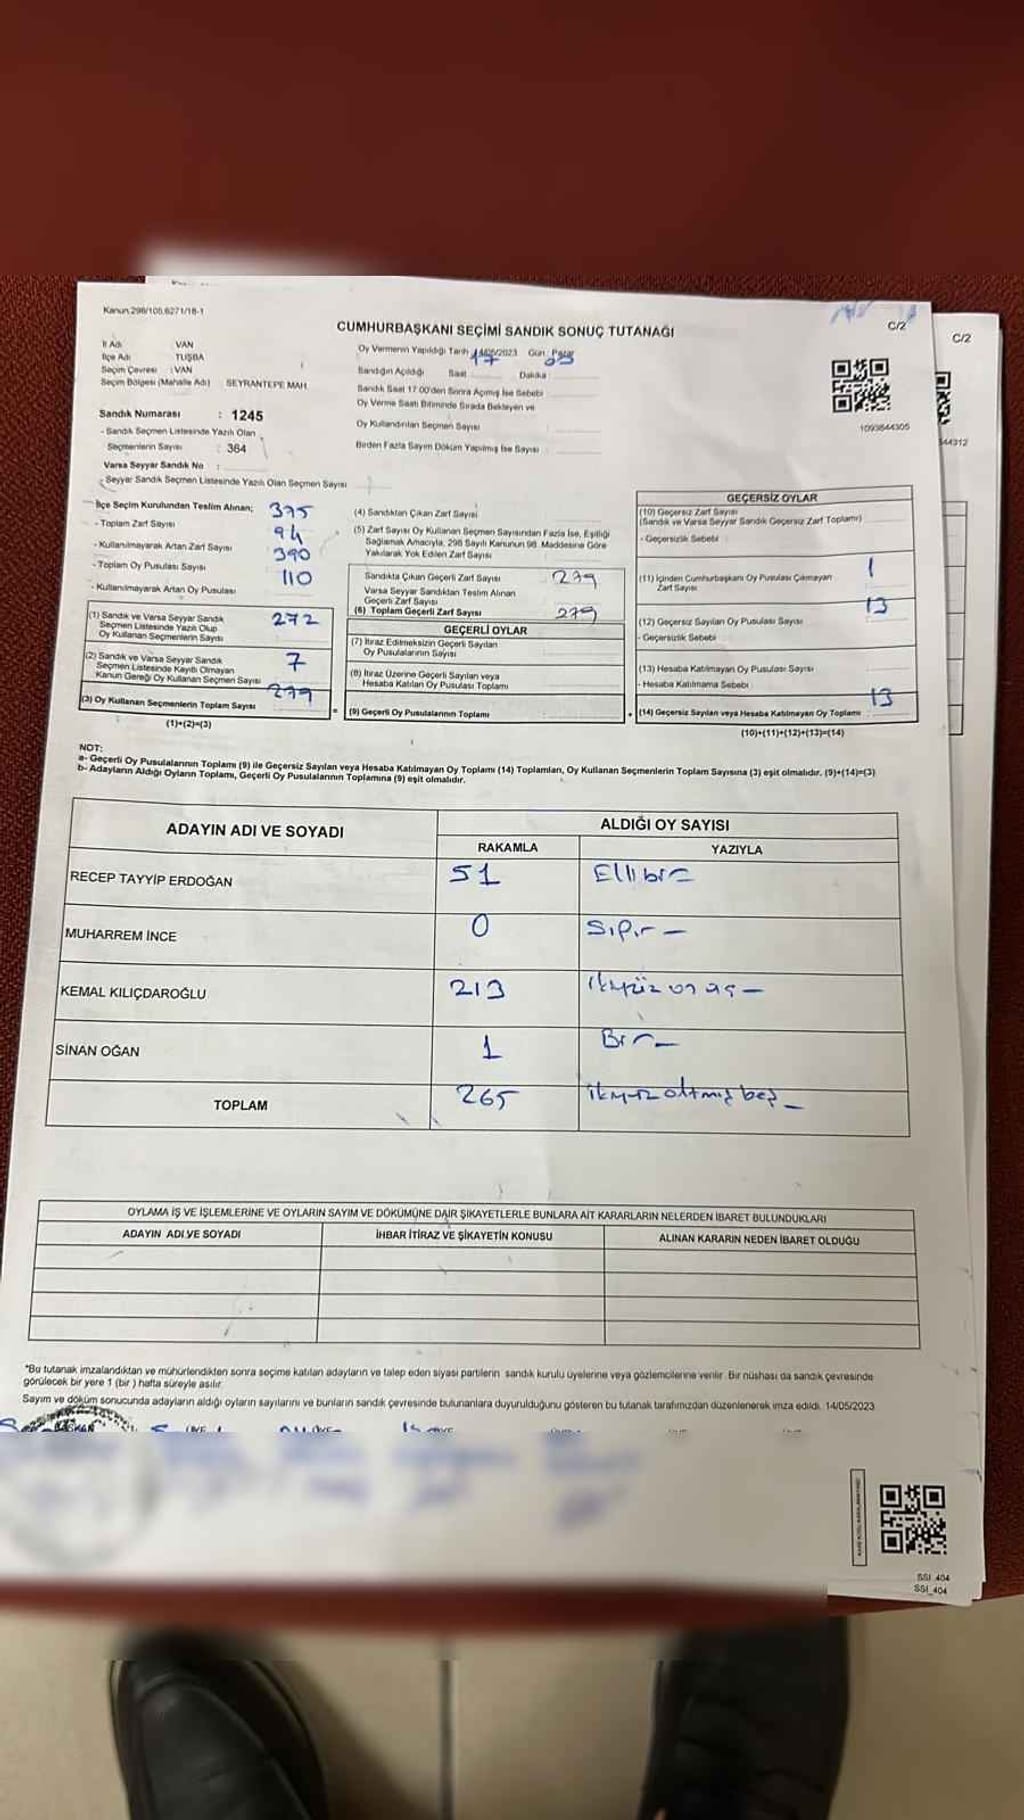 Kanun 298/105,6271/18-1
C/2
C/2
CUMHURBAŞKANI SEÇİMİ SANDIK SONUÇ TUTANAĞI
İl Adı VAN
İlçe Adı TUŞBA
Seçim Çevresi : VAN
Seçim Bölgesi (Mahalle Adı) : SEYRANTEPE MAH.
Sandık Numarası : 1245
- Sandık Seçmen Listesinde Yazılı Olan
Seçmenlerin Sayısı : 364
Varsa Seyyar Sandık No :
- Seyyar Sandık Seçmen Listesinde Yazılı Olan Seçmen Sayısı
Oy Vermenin Yapıldığı Tarih 14/05/2023 Gün : Pazar
Sandığın Açıldığı Saat Dakika
Sandık Saat 17.00'den Sonra Açılmış İse Sebebi
Oy Verme Saati Bitiminde Sırada Bekleyen ve
Oy Kullandırılan Seçmen Sayısı
Birden Fazla Sayım Döküm Yapılmış İse Sayısı
1093844305
44312
İlçe Seçim Kurulundan Teslim Alınan; 375
- Toplam Zarf Sayısı 94
- Kullanılmayarak Artan Zarf Sayısı 390
- Toplam Oy Pusulası Sayısı 110
- Kullanılmayarak Artan Oy Pusulası
(1) Sandık ve Varsa Seyyar Sandık 272
Seçmen Listesinde Yazılı Olup
Oy Kullanan Seçmenlerin Sayısı
(2) Sandık ve Varsa Seyyar Sandık 7
Seçmen Listesinde Kayıtlı Olmayan
Kanun Gereği Oy Kullanan Seçmen Sayısı
(3) Oy Kullanan Seçmenlerin Toplam Sayısı 279
(1)+(2)=(3)
(4) Sandıktan Çıkan Zarf Sayısı
(5) Zarf Sayısı Oy Kullanan Seçmen Sayısından Fazla İse, Eşitliği
Sağlamak Amacıyla, 298 Sayılı Kanunun 98. Maddesine Göre
Yakılarak Yok Edilen Zarf Sayısı
Sandıkta Çıkan Geçerli Zarf Sayısı 279
Varsa Seyyar Sandıktan Teslim Alınan
Geçerli Zarf Sayısı
(6) Toplam Geçerli Zarf Sayısı 279
GEÇERLİ OYLAR
(7) İtiraz Edilmeksizin Geçerli Sayılan
Oy Pusulalarının Sayısı
(8) İtiraz Üzerine Geçerli Sayılan veya
Hesaba Katılan Oy Pusulası Toplamı
= (9) Geçerli Oy Pusulalarının Toplamı
GEÇERSİZ OYLAR
(10) Geçersiz Zarf Sayısı
(Sandık ve Varsa Seyyar Sandık Geçersiz Zarf Toplamı)
- Geçersizlik Sebebi
(11) İçinden Cumhurbaşkanı Oy Pusulası Çıkmayan 1
Zarf Sayısı
(12) Geçersiz Sayılan Oy Pusulası Sayısı 13
- Geçersizlik Sebebi
(13) Hesaba Katılmayan Oy Pusulası Sayısı
- Hesaba Katılmama Sebebi
+ (14) Geçersiz Sayılan veya Hesaba Katılmayan Oy Toplamı 13
(10)+(11)+(12)+(13)=(14)
NOT:
a- Geçerli Oy Pusulalarının Toplamı (9) ile Geçersiz Sayılan veya Hesaba Katılmayan Oy Toplamı (14) Toplamları, Oy Kullanan Seçmenlerin Toplam Sayısına (3) eşit olmalıdır. (9)+(14)=(3)
b- Adayların Aldığı Oyların Toplamı, Geçerli Oy Pusulalarının Toplamına (9) eşit olmalıdır.
ADAYIN ADI VE SOYADI
ALDIĞI OY SAYISI
RAKAMLA YAZIYLA
RECEP TAYYİP ERDOĞAN 51 Ellibir
MUHARREM İNCE 0 Sıfır
KEMAL KILIÇDAROĞLU 213 ikiyüz on üç
SİNAN OĞAN 1 Bir
TOPLAM 265 ikiyüz altmış beş
OYLAMA İŞ VE İŞLEMLERİNE VE OYLARIN SAYIM VE DÖKÜMÜNE DAİR ŞİKAYETLERLE BUNLARA AİT KARARLARIN NELERDEN İBARET BULUNDUKLARI
ADAYIN ADI VE SOYADI İHBAR İTİRAZ VE ŞİKAYETİN KONUSU ALINAN KARARIN NEDEN İBARET OLDUĞU
*Bu tutanak imzalandıktan ve mühürlendikten sonra seçime katılan adayların ve talep eden siyasi partilerin sandık kurulu üyelerine veya gözlemcilerine verilir. Bir nüshası da sandık çevresinde
görülecek bir yere 1 (bir) hafta süreyle asılır.
Sayım ve döküm sonucunda adayların aldığı oyların sayılarını ve bunların sandık çevresinde bulunanlara duyurulduğunu gösteren bu tutanak tarafımızdan düzenlenerek imza edildi. 14/05/2023
BAŞKAN
SSI_404
SSI_404